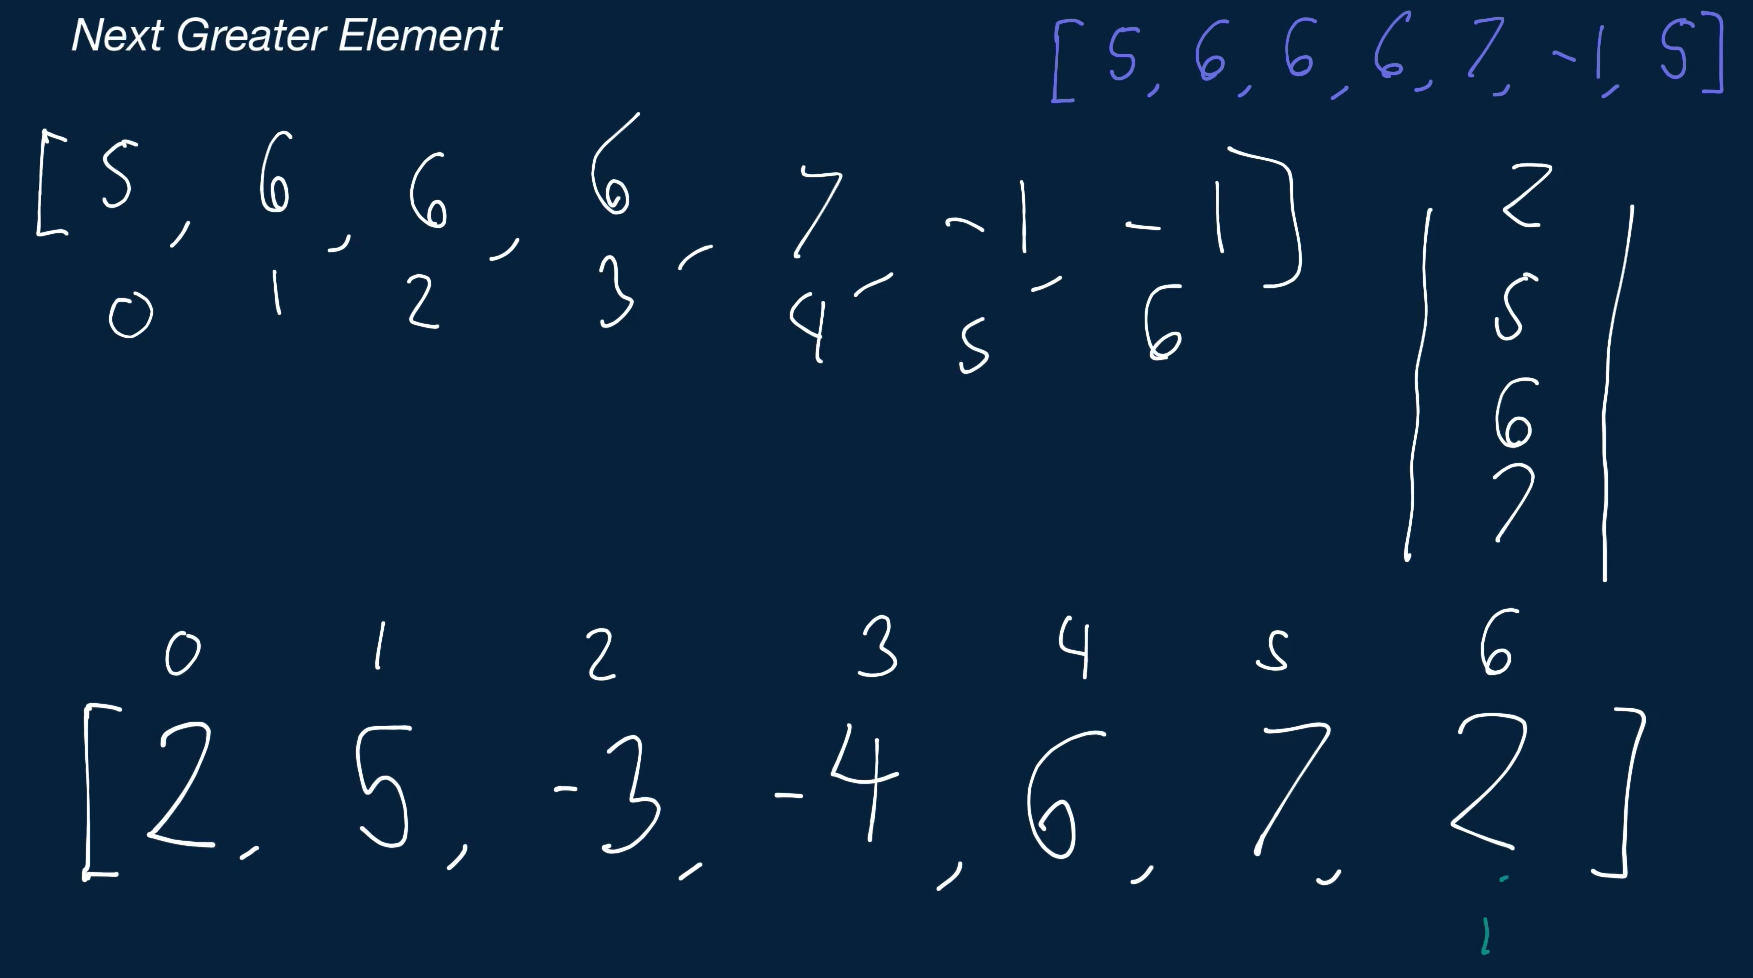 Next Greater Element
[5, 6, 6, 6, 7, -1, 5]
[5, 6, 6, 6, 7, -1, -1]
0 1 2 3 4 5 6
2
5
6
7
0 1 2 3 4 5 6
[2, 5, -3, -4, 6, 7, 2]